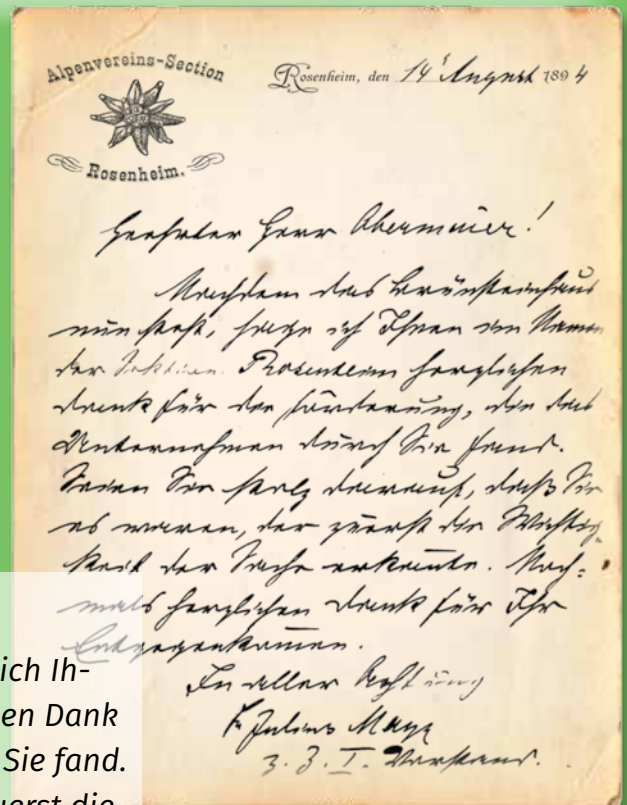 Alpenvereins-Section
Rosenheim.
Rosenheim, den 14' August 1894
Geehrter Herr Obermaier!
Nachdem das Brünsteinhaus
nun steht, sage ich Ihnen im Namen
der Sektion Rosenheim herzlichen
Dank für die Förderung, die das
Unternehmen durch Sie fand.
Seien Sie stolz darauf, daß Sie
es waren, der zuerst die Wichtig-
keit der Sache erkannte. Noch-
mals herzlichen Dank für Ihr
Entgegenkommen.
In aller Achtung
Julius Mayr
z. Z. I. Vorstand.
ich Ih-
en Dank
Sie fand.
uerst die